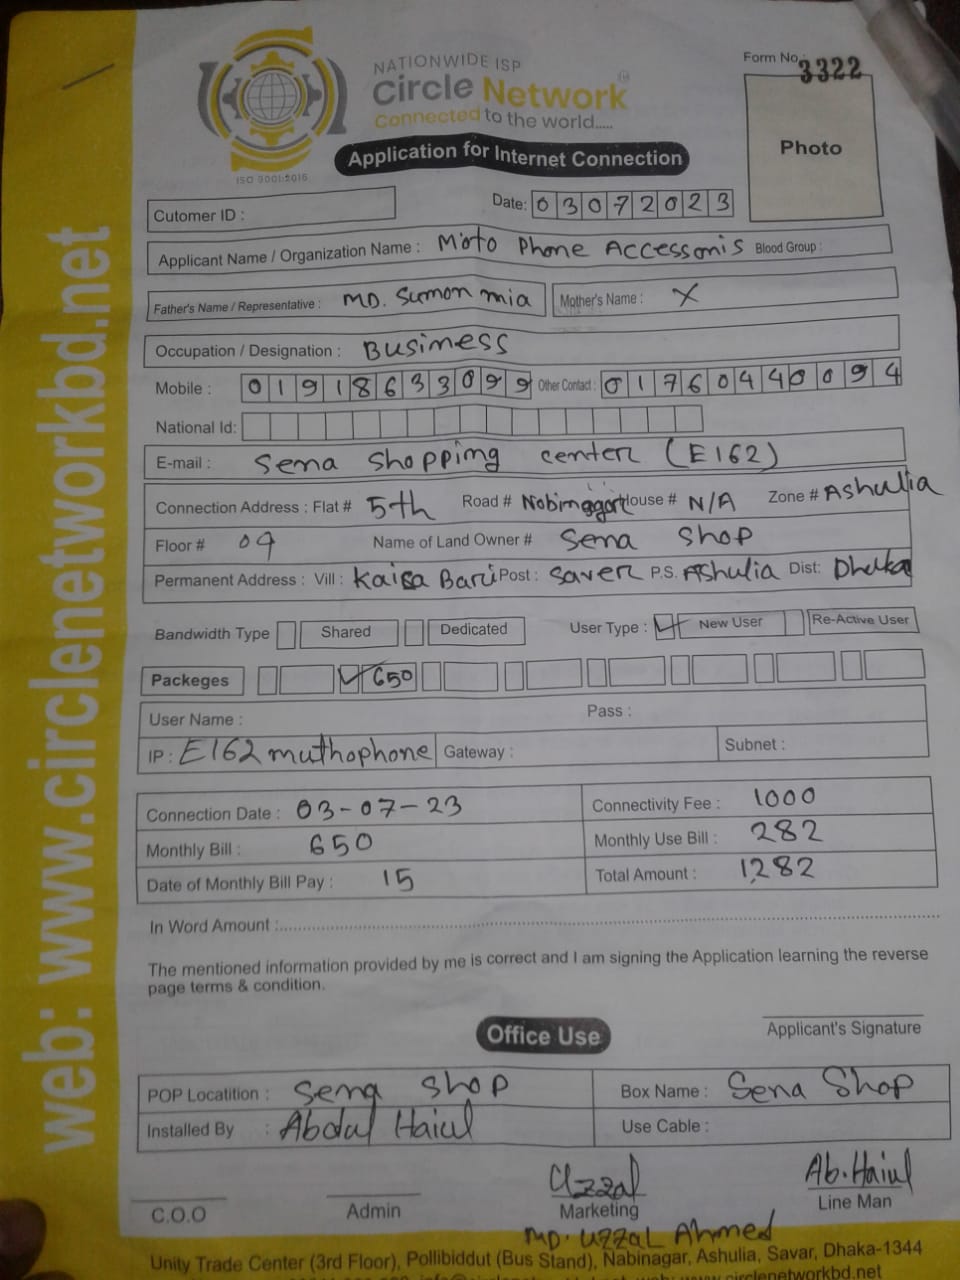 NATIONWIDE ISP
Circle Network
Connected to the world.....
ISO 9001:2015
Form No. 3322
Photo
Application for Internet Connection
Cutomer ID :
Date: 03072023
Applicant Name / Organization Name : Moto Phone Accessonis Blood Group :
Father's Name / Representative : MD. Sumon mia Mother's Name : X
Occupation / Designation : Business
Mobile : 01918633099 Other Contact : 01760440094
National Id:
E-mail : Sena Shopping center (E162)
Connection Address : Flat # 5th Road # House # N/A Zone # Ashulia
Floor # 09 Name of Land Owner # Sena Shop
Permanent Address : Vill : Kaisa Bari Post : Saver P.S. Ashulia Dist: Dhaka
Bandwidth Type Shared Dedicated User Type : ✓ New User Re-Active User
Packeges ✓ 650
User Name : Pass :
IP : E162muthophone Gateway : Subnet :
Connection Date : 03-07-23 Connectivity Fee : 1000
Monthly Bill : 650 Monthly Use Bill : 282
Date of Monthly Bill Pay : 15 Total Amount : 1282
In Word Amount :
The mentioned information provided by me is correct and I am signing the Application learning the reverse
page terms & condition.
Applicant's Signature
Office Use
POP Locatition : Sena Shop Box Name : Sena Shop
Installed By : Abdul Haiul Use Cable :
Uzzal Ab.Haiul
C.O.O Admin Marketing Line Man
MD. UZZAL Ahmed
Unity Trade Center (3rd Floor), Pollibiddut (Bus Stand), Nabinagar, Ashulia, Savar, Dhaka-1344
web: www.circlenetworkbd.net